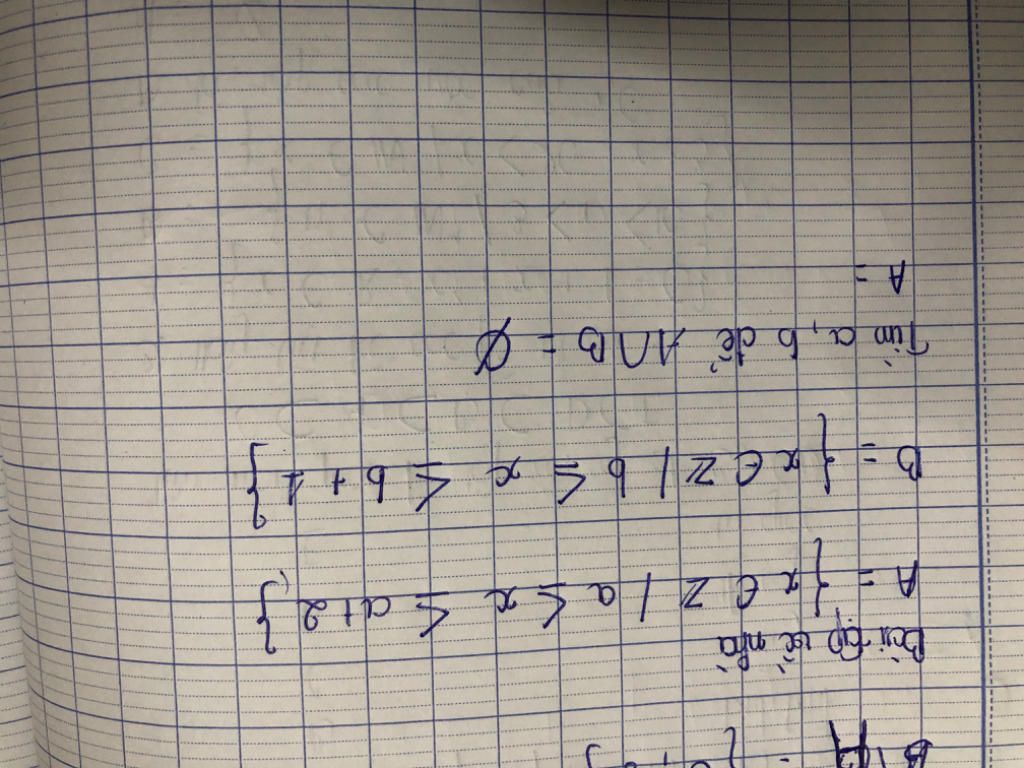 Bài tập về nhà
A = {x ∈ Z / a ≤ x ≤ a+2}
B = {x ∈ Z / b ≤ x ≤ b + 1}
Tìm a, b để A ∩ B = Ø
A =